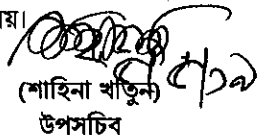 য়।
(শাহিনা খাতুন)
উপসচিব